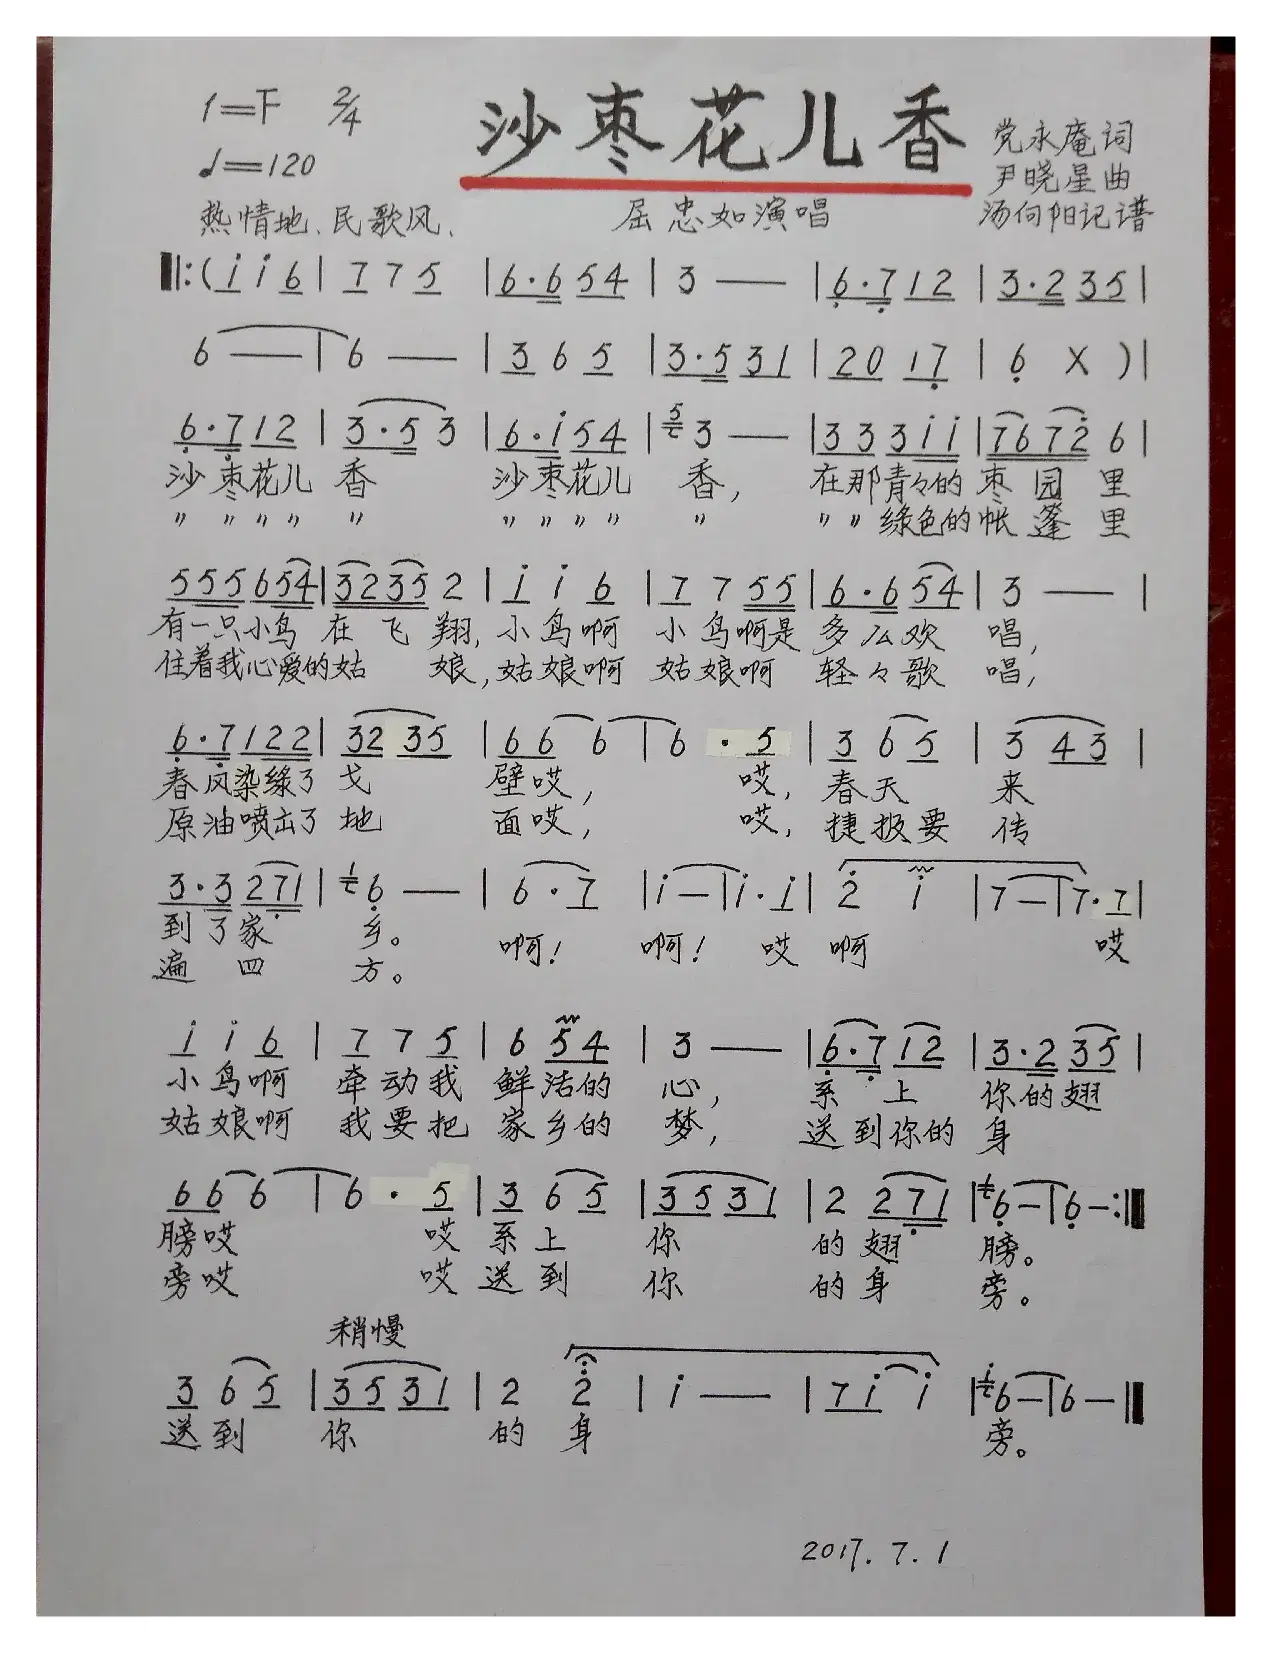 1=F 2/4 沙枣花儿香 党永庵词
♩=120 尹晓星曲
热情地、民歌风、 屈忠如演唱 汤向阳记谱
‖:(i i 6 | 7 7 5 | 6·6 5 4 | 3 — | 6·7 1 2 | 3·2 3 5 |
6 — | 6 — | 3 6 5 | 3·5 3 1 | 2 0 1 7 | 6 X ) |
6·7 1 2 | 3·5 3 | 6·i 5 4 | 5 3 — | 3 3 3 i i | 7 6 7 2 6 |
沙枣花儿 香 沙枣花儿 香, 在那青々的枣园里
〃 〃 〃 〃 〃 〃 〃 〃 〃 〃 〃 〃 绿色的帐篷里
5 5 5 6 5 4 | 3 2 3 5 2 | i i 6 | 7 7 5 5 | 6·6 5 4 | 3 — |
有一只小鸟 在飞翔, 小鸟啊 小鸟啊是 多么欢 唱,
住着我心爱的姑 娘, 姑娘啊 姑娘啊 轻々歌 唱,
6·7 1 2 2 | 3 2 3 5 | 6 6 6 | 6 · 5 | 3 6 5 | 3 4 3 |
春风染绿了 戈 壁哎, 哎, 春天 来
原油喷出了 地 面哎, 哎, 捷报要 传
3·3 2 7 1 | 1 6 — | 6·7 | i — | i·i | 2 i | 7 — | 7·7 |
到了家 乡。 啊! 啊! 哎 啊 哎
遍四 方。
i i 6 | 7 7 5 | 6 5 4 | 3 — | 6·7 1 2 | 3·2 3 5 |
小鸟啊 牵动我 鲜活的 心, 系上 你的翅
姑娘啊 我要把 家乡的 梦, 送到你的 身
6 6 6 | 6 · 5 | 3 6 5 | 3 5 3 1 | 2 2 7 1 | 1 6 — | 6 — :‖
膀哎 哎 系上 你 的翅 膀。
旁哎 哎 送到 你 的身 旁。
稍慢
3 6 5 | 3 5 3 1 | 2 2 | i — | 7 i i | i 6 — | 6 — ‖
送到 你 的身 旁。
2017. 7. 1